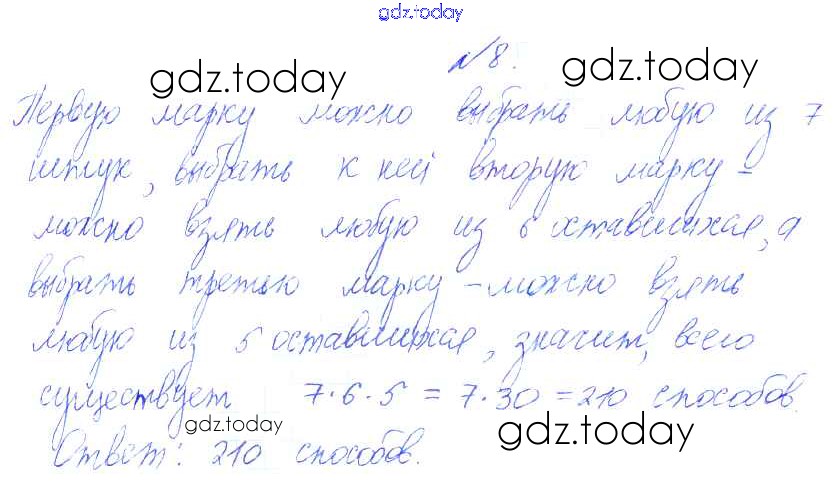 gdz.today
№8.
gdz.today gdz.today
Первую марку можно выбрать любую из 7
штук, выбрать к ней вторую марку –
можно взять любую из 6 оставшихся, а
выбрать третью марку – можно взять
любую из 5 оставшихся, значит, всего
существует 7·6·5 = 7·30 = 210 способов.
gdz.today gdz.today
Ответ: 210 способов.